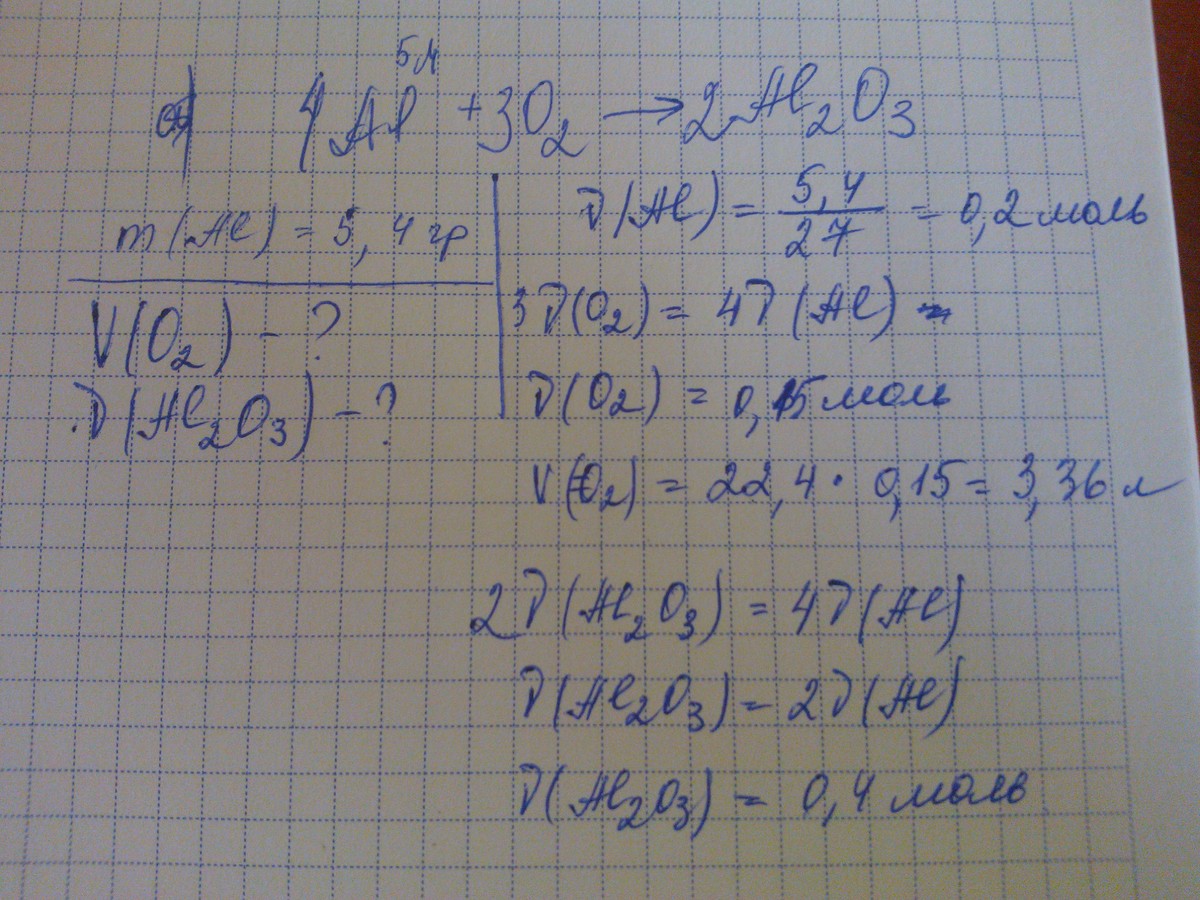 5,4
4Al + 3O₂ → 2Al₂O₃
m(Al) = 5,4 гр
V(O₂) - ?
ν(Al₂O₃) - ?
ν(Al) = 5,4/27 = 0,2 моль
3ν(O₂) = 4ν(Al)
ν(O₂) = 0,15 моль
V(O₂) = 22,4 · 0,15 = 3,36 л
2ν(Al₂O₃) = 4ν(Al)
ν(Al₂O₃) = 2ν(Al)
ν(Al₂O₃) = 0,4 моль